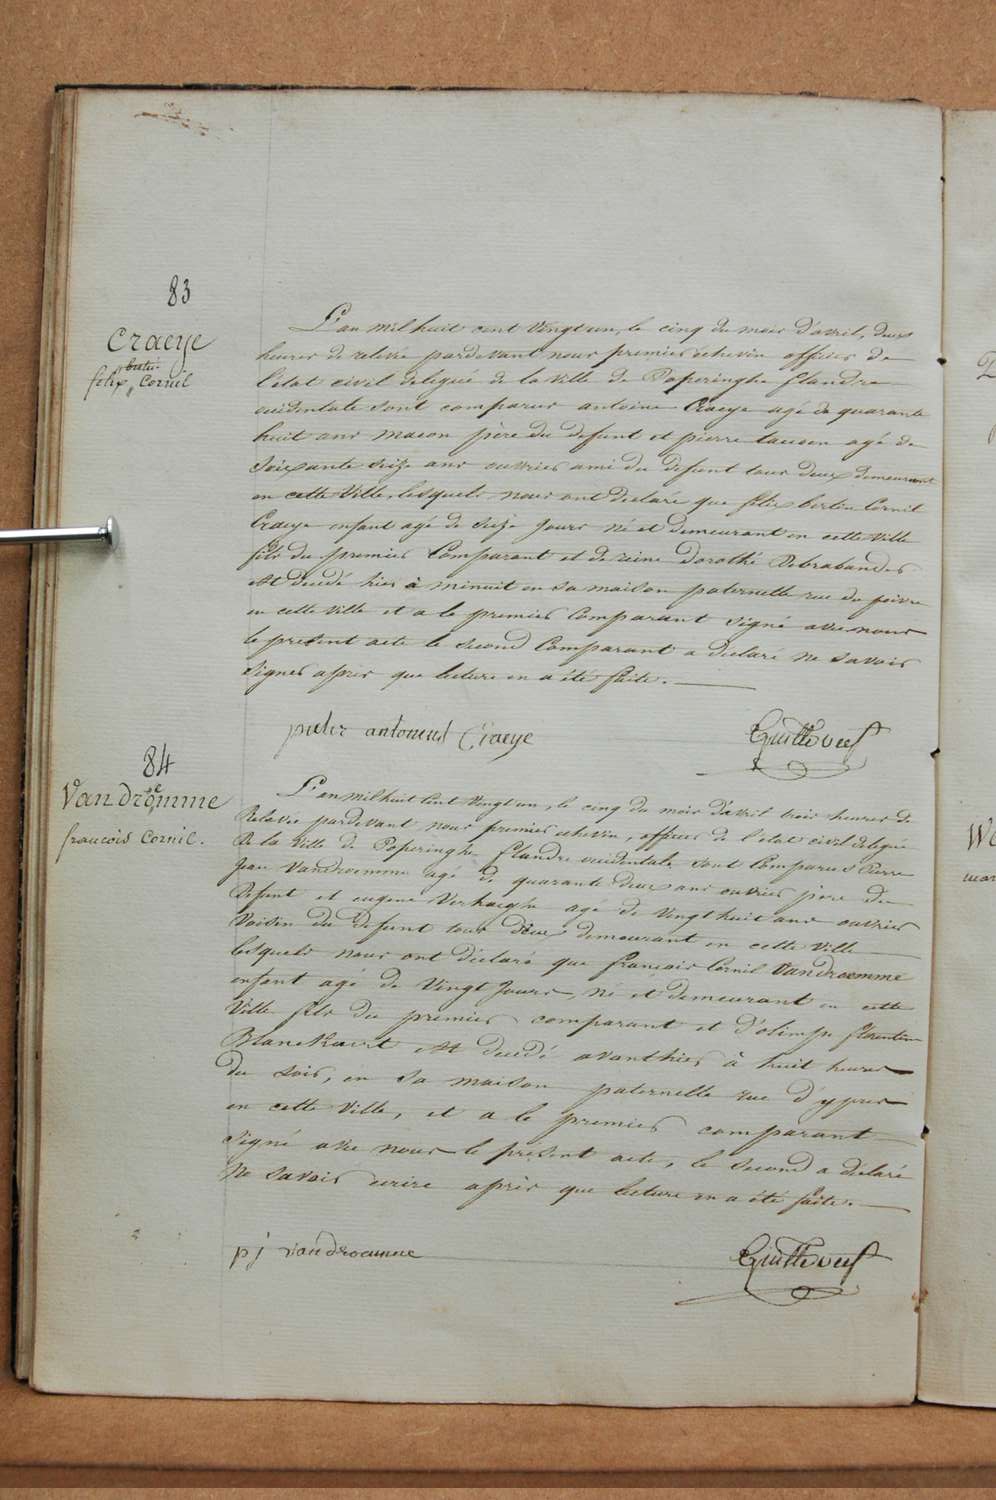 83
Craeye
bertin
felix " Cornil
L'an mil huit cent vingt un, le cinq du mois d'avril, deux
heures de relevée pardevant nous premier échevin officier de
l'état civil délégué de la ville de Poperinghe flandre
occidentale sont comparus antoine Craeye agé de quarante
huit ans macon père du defunt et pierre agé de
soixante seize ans ouvrier ami du defunt tous deux demeurant
en cette ville, lesquels nous ont declaré que félix bertin Cornil
Craeye enfant agé de seize jours né et demeurant en cette ville
fils du premier Comparant et de reine dorothé Debrabander
est decedé hier à minuit en sa maison paternelle rue du poivre
en cette ville et a le premier Comparant signé avec nous
le present acte le second Comparant a déclaré ne savoir
signer après que lecture en a été faite.
pieter antonius Craeye
84
Vandroemme
francois Cornil.
L'an mil huit cent vingt un, le cinq du mois d'avril trois heures de
Relevée pardevant nous premier échevin, officier de l'état civil délégué
de la ville de Poperinghe flandre occidentale sont Comparus Pierre
Jean Vandroemme agé de quarante deux ans ouvrier père du
defunt et eugene Verhaeghe agé de vingt huit ans ouvrier
Voisin du defunt tous deux demeurant en cette ville
lesquels nous ont déclaré que françois Cornil Vandroemme
enfant agé de vingt jours, né et demeurant en cette
ville fils du premier comparant et d'olimpe florentine
Blanckaert est decedé avanthier à huit heures
du soir, en sa maison paternelle rue d'ypres
en cette ville, et a le premier comparant
signé avec nous le present acte, le second a déclaré
ne savoir ecrire après que lecture en a été faite.
pj vandroemme